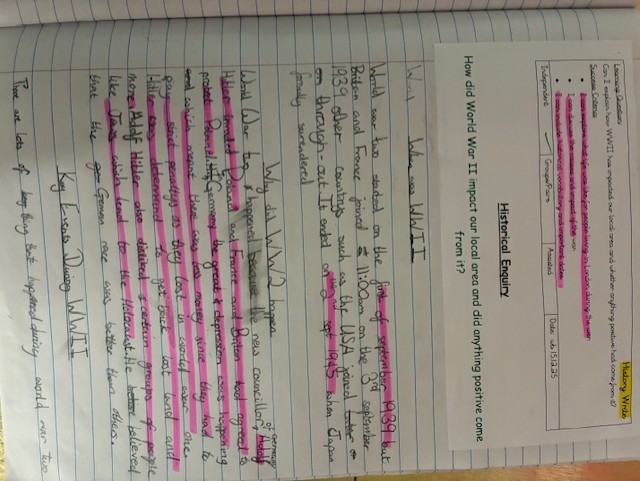 History Write
Learning Question:
Can I explain how WWII has impacted our local area and whether anything positive has come from it?
Success Criteria
I can explain what life was like for people living in London during the war
I can discuss the causes and impact of the war
I can include historical vocabulary and important dates
Independent
Group/Pairs
Assisted
Date: wb 15.12.25
Historical Enquiry
How did World War II impact our local area and did anything positive come
from it?
When was WWII
World war two started on the first of september 1939 but
Britain and France joined at 11:00am on the 3rd september
1939 other countrys such as the USA joined
on through-out it ended on 2nd sept 1945 when Japan
formally surrendered
Why did WW2 happen
World War two happened because the new councillor of Germany Adolf
Hitler invaded Poland and France and Britain had agreed to
protect Poland. In Germany the great depression was happening
and which meant there was less money since they had to
pay strict penalties as they lost in world war one.
Hitler was determined to get back lost land and
more. Adolf Hitler also disliked certain groups of people
like Jews which lead to the Holocaust. He believed
that the German race was better than others.
Key Events During WWII
There are lots of key thing that happened during world war two